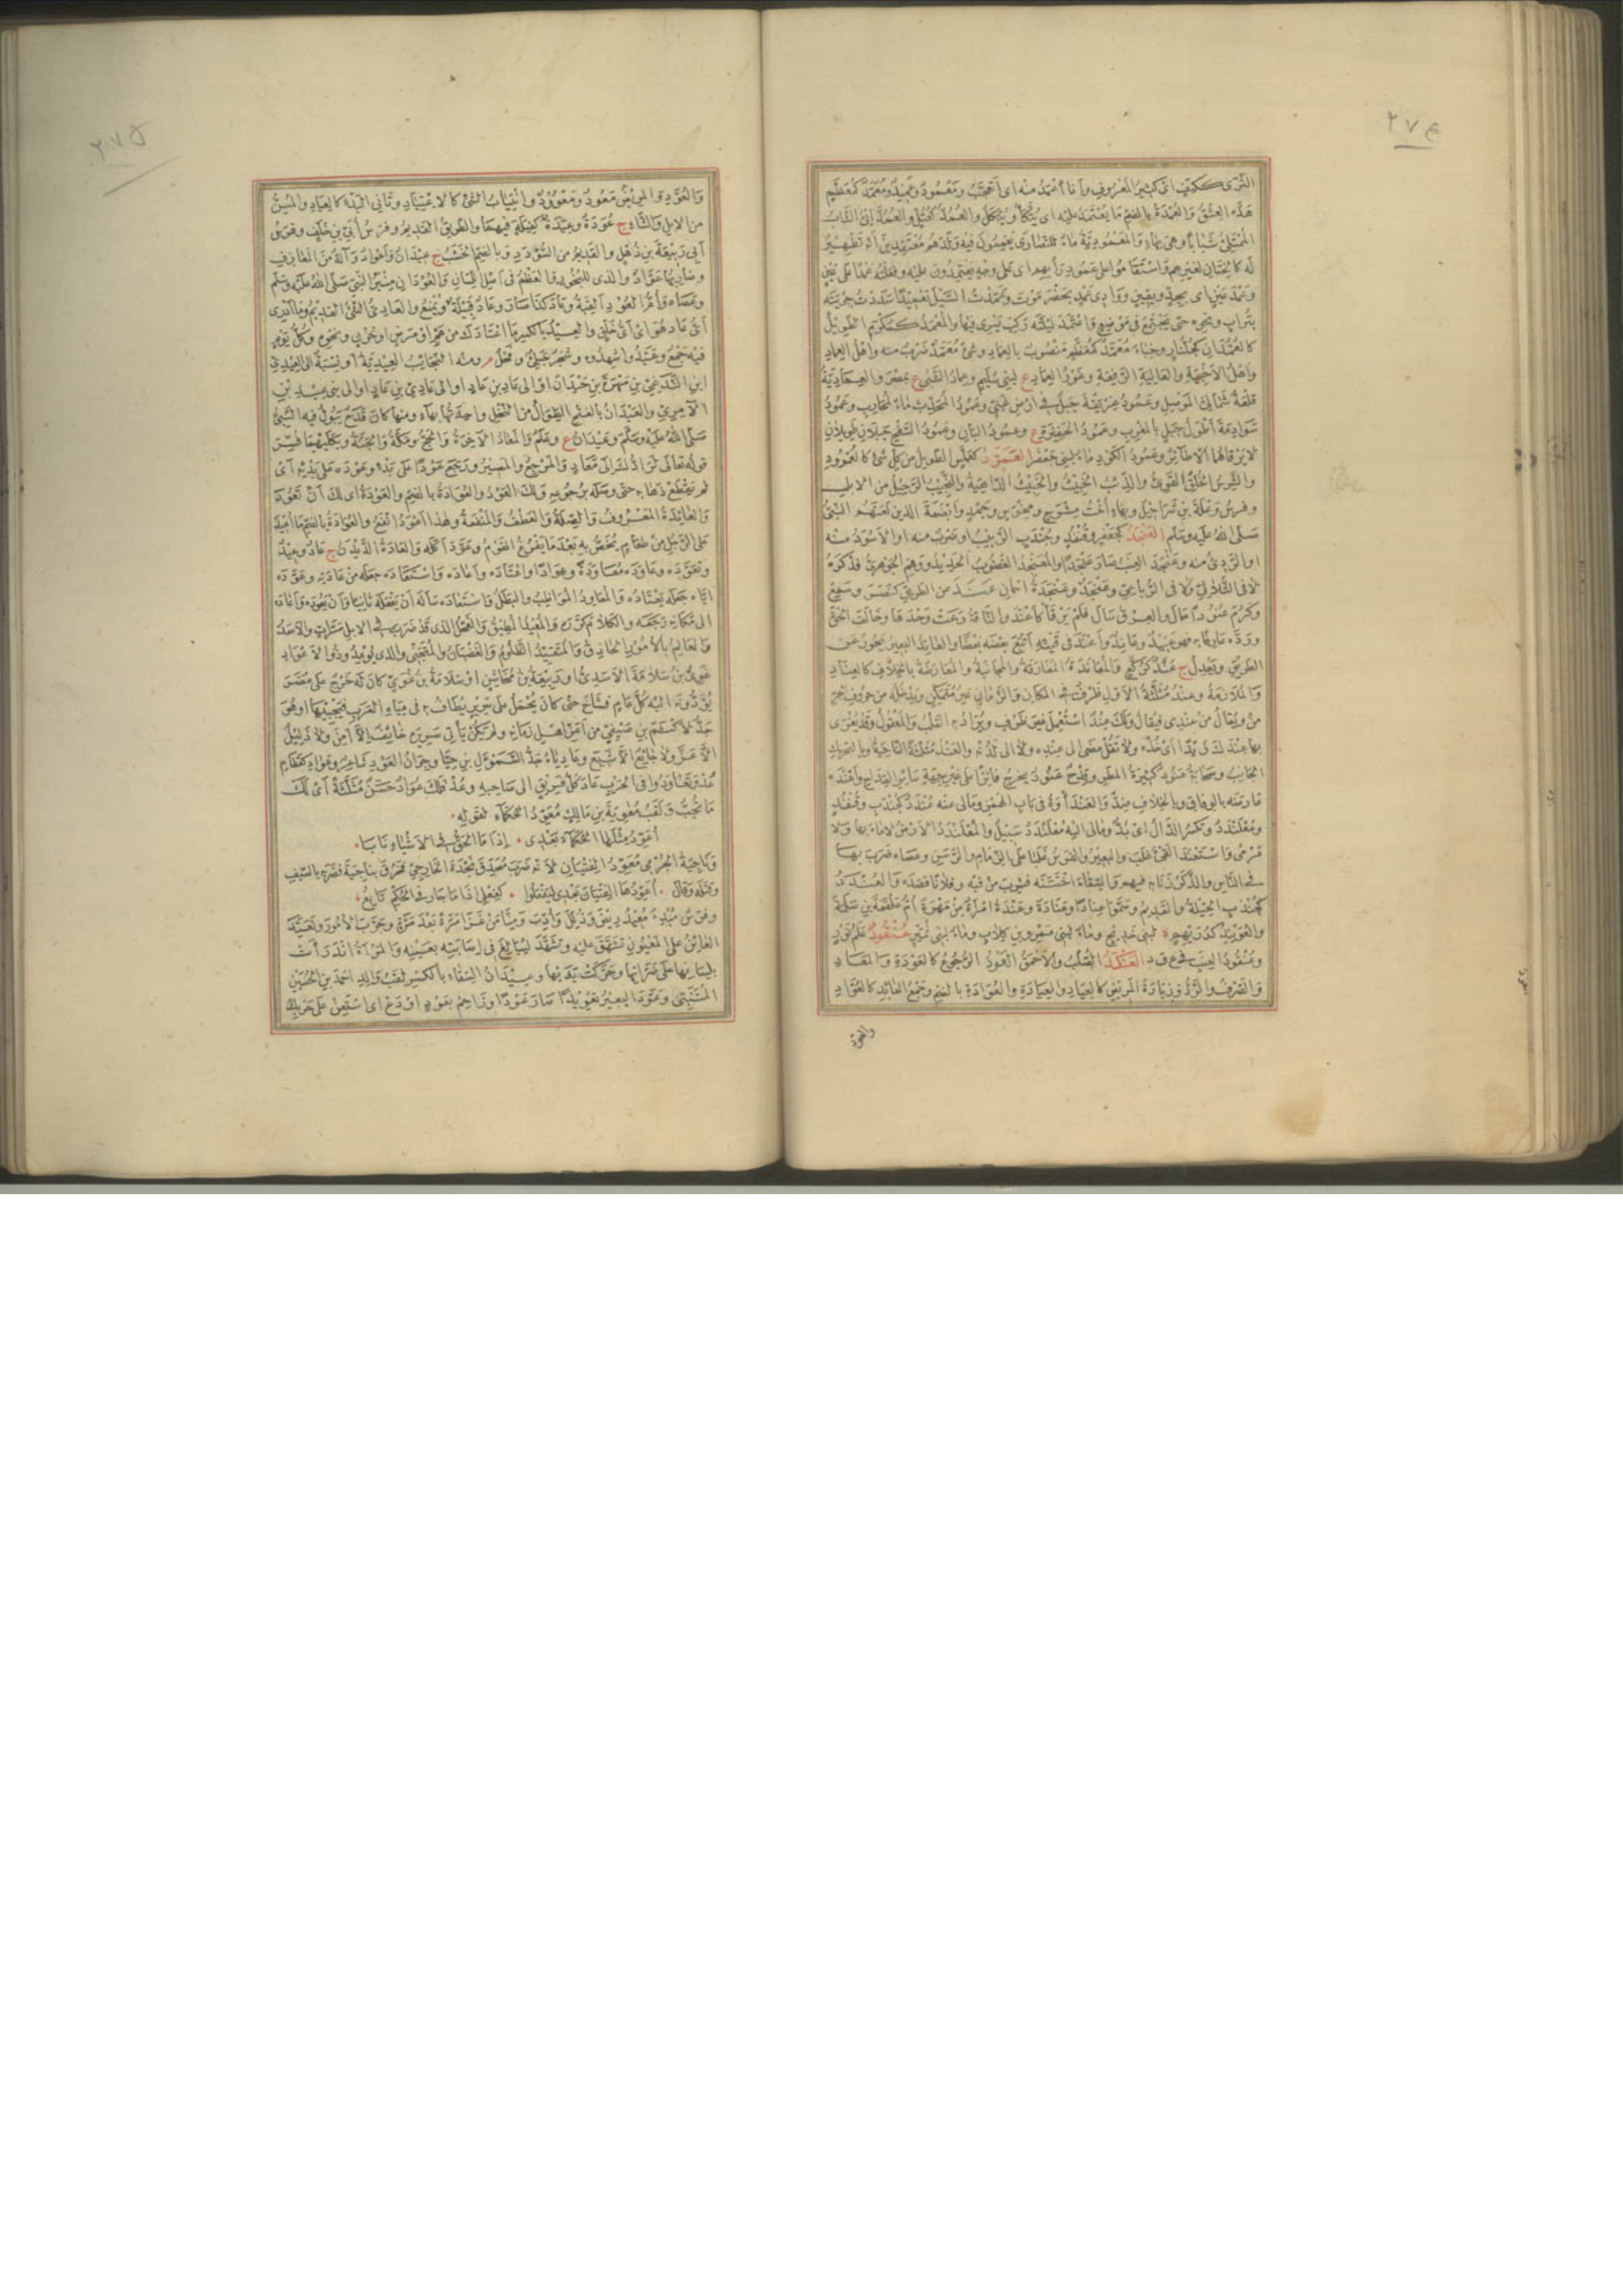 ٢٧٤
الثرى ككتف اى كثير المعروف وانا أعمد منه اى أتعجب ومعمود وعميد ومعمد كمعظم
هذه العشق والعمدة بالضم ما يعتمد عليه اى يتكأ ويتكل والعمد كعتل والعمدانى الشاب
الممتلئ شبابا وهى بهاء والمعمودية ماء للنصارى يغمسون فيه ولدهم معتقدين أنه تطهير
له كالختان لغيرهم واستقاموا على عمود رأيهم اى على وجه يعتمدون عليه وفعلته عمدا على عين
وعمد عين اى بجد ويقين ووادى عمد بحضرموت وعمدت السيل تعميدا سددت جريته
بتراب ونحوه حتى يجتمع فى موضع واعتمد ليلته ركب يسرى فيها والمعمد كمكرم الطويل
كالعمدان كجلنار وخباء معمد كمعظم منصوب بالعماد وشئ معمد ضرب منه واهل العماد
واهل الاخبية والعالية الرفيعة وغور العماد ع لبنى سليم وعماد الشبى ع بمصر والعمادية
قلعة شمالى الموصل وعمود غريفة جبل فى ارض غنى وعمود المحدث ماء لمحارب وعمود
سوادمة أطول جبل بالمغرب وعمود الحفيرة ع وعمود البان وعمود السفح جبلان طويلان
لا يرقاهما الا طائر وعمود الكود ماء لبنى جعفر العمرد كعملس الطويل من كل شئ كالعمرود
والشرس الخلق القوى والذئب الخبيث والخبيث الداهية والنجيب الرحيل من الابل
وفرس وعلة بن شراحيل وبهاء أخت مشرح ومخوس وجمد وابضعة الذين لعنهم النبى
صلى الله عليه وسلم العنجد كجعفر وقنفذ وجندب الزبيب او ضرب منه او الاسود منه
او الردئ منه وعنجد العنب صار عنجدا والمعنجد الغضوب الحديد ووهم الجوهرى فذكره
لا فى الثلاثى ولا فى الرباعى وعنجد وعنجدة اسمان عند عن الطريق كنصر وسمع
وكرم عنودا مال والعرق سال فلم يرقأ كأعند والناقة رعت وحدها وخالف الحق
ورده عارفا به فهو عنيد وعاند وأعند فى قيئه أتبع بعضه بعضا والعاند البعير يحور عن
الطريق ويعدل ج عند كركع والمعاندة المفارقة والمجانبة والمعارضة بالخلاف كالعناد
والملازمة وعند مثلثة الاول ظرف فى المكان والزمان غير متمكن ويدخله من حروف الجر
من ويقال من عندى فيقال ولك عند استعمل غير ظرف ويراد به القلب والمعقول وقد يغرى
بها عندك زيدا اى خذه ولا تقل مضى الى عنده ولا الى لدنه والعند مثلثة الناحية وبالتحريك
الجانب وسحابة عنود كثيرة المطر وقدح عنود يخرج فائزا على غير جهة سائر القداح وأعنده
عارضه بالوفاق وبالخلاف ضد والعندأوة فى باب الهمز ومالى عنه عندد كجندب وقنفذ
ومعلندد وتكسر الدال اى بد ومالى اليه معلندد سبيل والمعلندد الارض لا ماء بها ولا
مرعى واستعند القئ غلب والبعير والفرس غلبا على الزمام والرسن وعصاه ضرب بها
فى الناس والذكر زنا به فيهم والسقاء اختنثه فشرب من فيه وفلانا قصده والعندد
كجندب الحيلة والقديم وسموا عنادا وعنادة وعندة امرأة من مهرة أم علقمة بن سلمة
والعويند كدريهم ة لبنى خديج وماء لبنى عمرو بن كلاب وماء لبنى نمير عنقود علم ثور
وعنقود العنب فى ع ق د العنكد الصلب والاحمق العود الرجوع كالعودة والمعاد
والصرف والرد وزيارة المريض كالعياد والعيادة والعوادة بالضم وجمع العائد كالعواد
والعود
٢٧٥
والعود والمريض معود ومعوود وانتياب الشئ كالاعتياد وثانى البدء كالعياد والمسن
من الابل والشاء ج عودة وعيدة كفيلة فيهما والطريق القديم وفرس أبى بن خلف وفرس
أبى ربيعة بن ذهل والقديم من السودد وبالضم الخشب ج عيدان وأعواد وآلة من المعازف
وضاربها عواد والذى للبخور والعظم فى اصل اللسان والعودان منبر النبى صلى الله عليه وسلم
وعصاه وأم العود القبة وعاد كذا صار وعاد قبيلة ويمنع والعادى الشئ القديم وما أدرى
أى عاد هو اى أى خلق والعيد بالكسر ما اعتادك من هم او مرض او حزن ونحوه وكل يوم
فيه جمع وعيدوا شهدوه وشجر جبلى وفحل م ومنه النجائب العيدية او نسبة الى العيدى
ابن الندغى بن مهرة بن حيدان او الى عاد بن عاد او الى عادى بن عاد او الى بنى عيد بن
الآمرى والعيدان بالفتح الطوال من النخل واحدتها بهاء ومنها كان قدح يبول فيه النبى
صلى الله عليه وسلم وعيدان ع وعلم والمعاد الآخرة والحج ومكة والجنة وبكليهما فسر
قوله تعالى لرادك الى معاد والمرجع والمصير ورجع عودا على بدء وعوده على بدئه اى
لم يقطع ذهابه حتى وصله برجوعه ولك العود والعوادة بالضم والعودة اى لك ان تعود
والعائدة المعروف والصلة والعطف والمنفعة وهذا أعود انفع والعوادة بالضم ما أعيد
على الرجل من طعام يخص به بعد ما يفرغ القوم وعود أكله والعادة الديدن ج عاد وعيد
وتعوده وعاوده معاودة وعوادا واعتاده وأعاده واستعاده جعله من عادته وعوده
اياه جعله يعتاده والمعاود المواظب والبطل واستعاده سأله أن يفعله ثانيا وأن يعود وأعاده
الى مكانه رجعه والكلام كرره والمعيد المطيق والفحل الذى قد ضرب فى الابل مرات والاسد
والعالم بالامور الحاذق والمتعيد الظلوم والغضبان والمتجنى والذى يوعد وذو الاعواد
غوى بن سلامة الاسدى او ربيعة بن مخاشن او سلامة بن غوى كان له خرج على مضر
يؤدونه اليه كل عام فشاخ حتى كان يحمل على سرير يطاف به فى مياه العرب فيجبيها او هو
جد لأكثم بن صيفى من أعز اهل زمانه ولم يكن يأتى سريره خائف الا أمن ولا ذليل
الا عز ولا جائع الا شبع وعادياء جد السموءل بن حيا وجران العود شاعر وعواد كقطام
عد وتعاودوا فى الحرب عاد كل فريق الى صاحبه وعد فلك عواد حسن مثلثة اى لك
ما تحب ولقب معوية بن مالك معود الحكماء لقوله
أعود مثلها الحكماء بعدى * إذا ما الحق فى الاشياع نابا
وناجية الجرمى معود الفتيان لانه ضرب مصدق نجدة الخارجى فخرق بناجية فضربه بالسيف
وقتله وقال * أعودها الفتيان بعدى ليفعلوا * كفعلى اذا ما جار فى الحكم تابع
وفرس مبدئ معيد ريض وذلل وأدب ومنا من غزا مرة بعد مرة وجرب الامور وتعيد
العائن على المعيون تشهق عليه وتشدد ليبالغ فى اصابته بعينه والمرأة اندرأت
بلسانها على ضراتها وحركت يديها وعيدان السقاء بالكسر لقب والد احمد بن الحسين
المتنبى وعود البعير تعويدا صار عودا وزاحم بعود او دع اى استعن على حربك